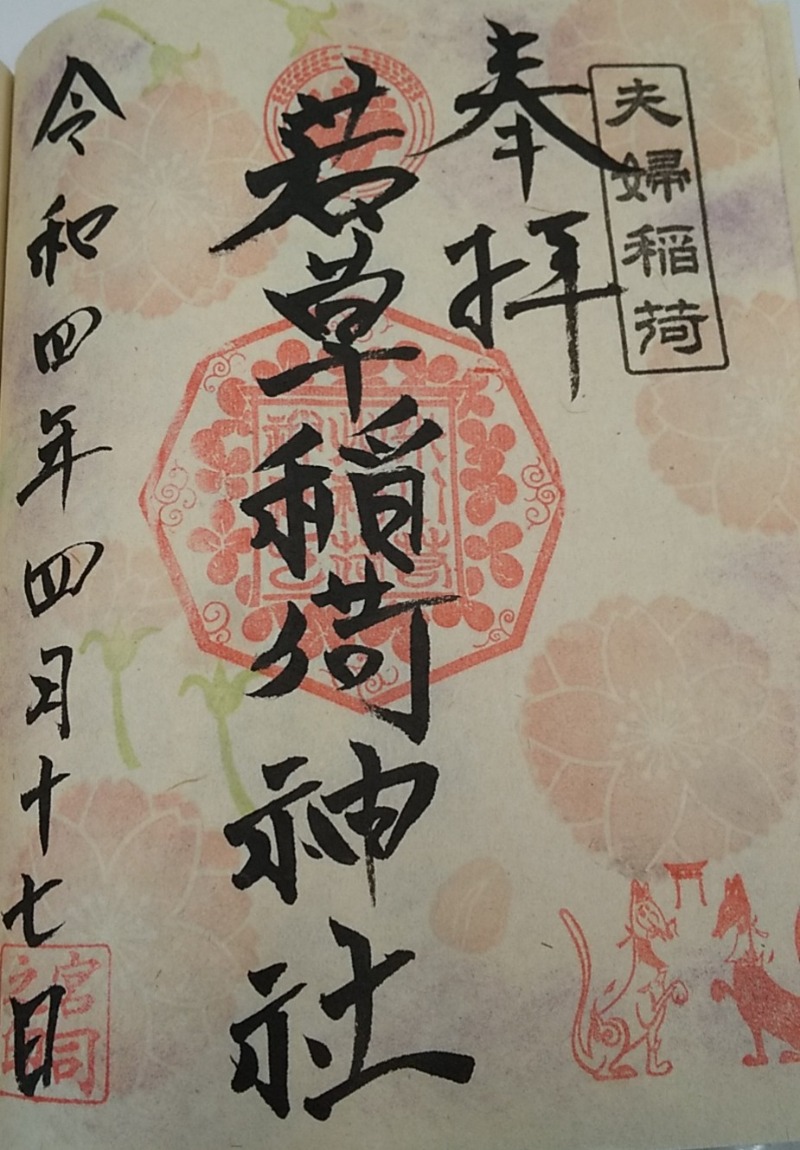 夫婦稲荷
奉拝
若草稲荷神社
令和四年四月十七日
宮司